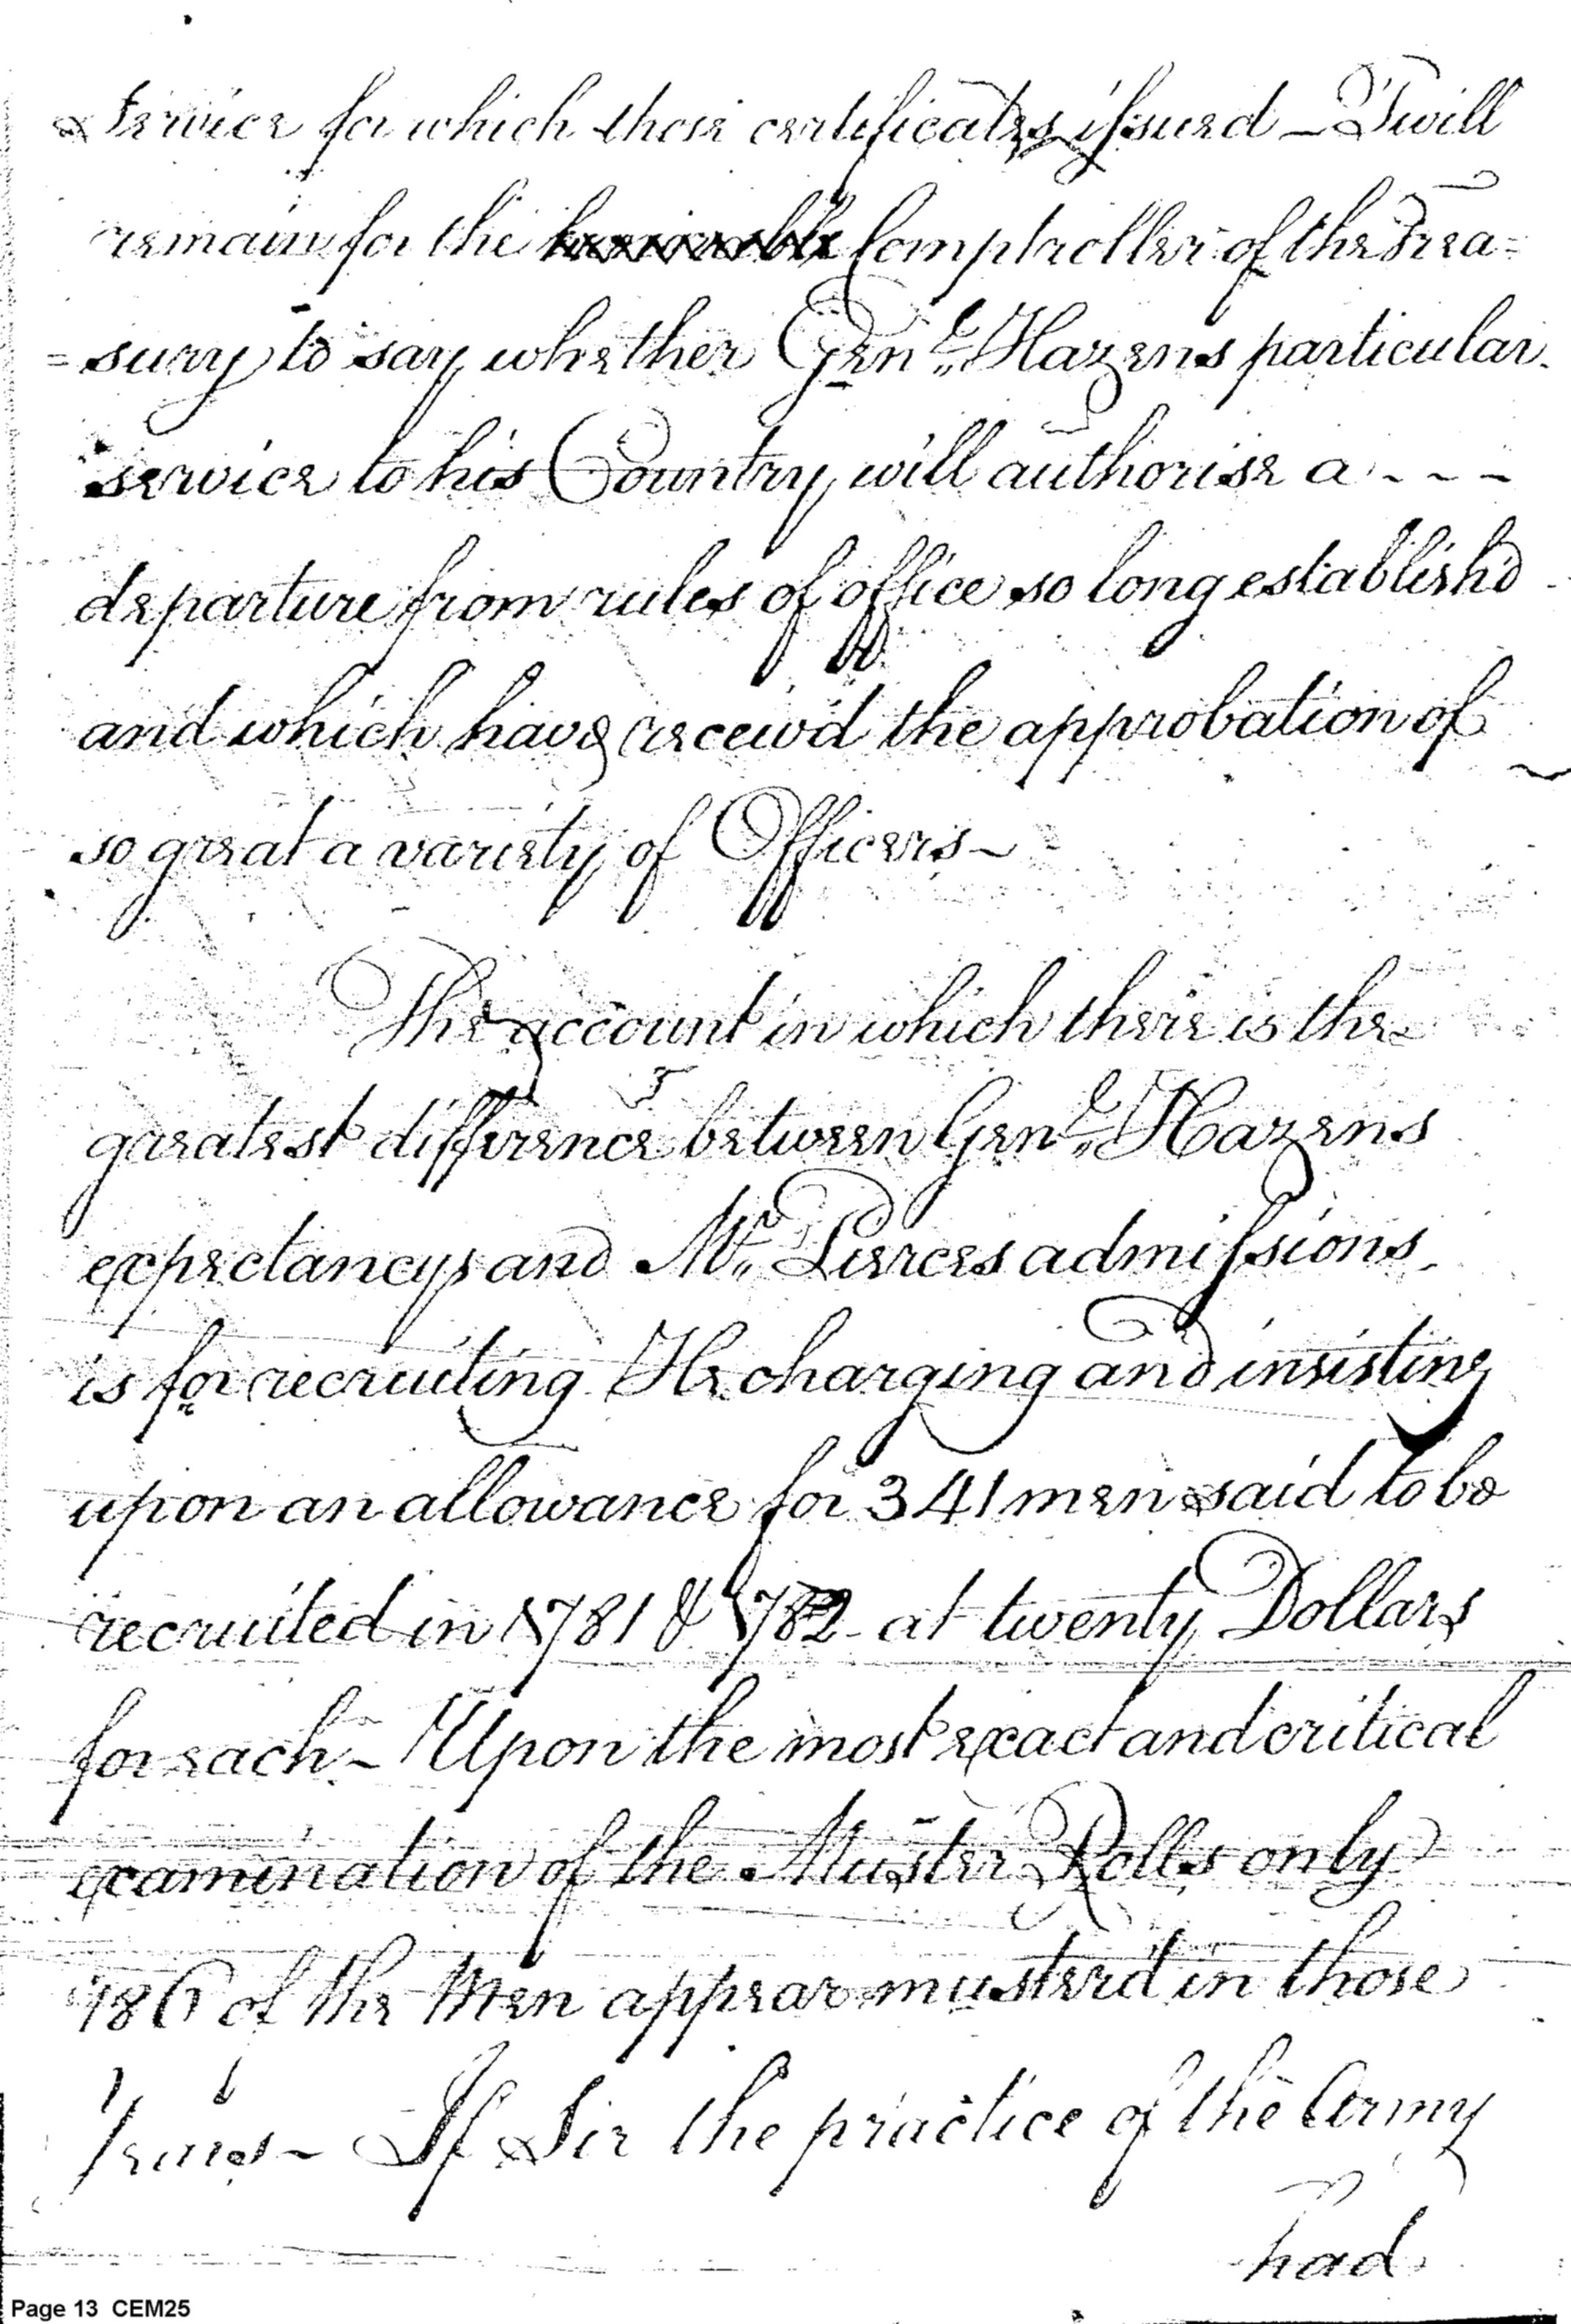 Service for which those certificates issued – T'will
remain for the Comptroller of the Trea=
=sury to say whether Gen.l Hazens particular
service to his Country will authorise a - - -
departure from rules of office so long establish'd
and which have receiv'd the approbation of
so great a variety of Officers –
The account in which there is the
greatest difference between Gen.l Hazens
expectancys and Mr. Pierces admissions
is for recruiting He charging and insisting
upon an allowance for 341 men said to be
recruited in 1781 & 1782 at twenty Dollars
for each – Upon the most exact and critical
examination of the Muster Rolls only
186 of the Men appear muster'd in those
Years – If Sir the practice of the Army
had
Page 13 CEM25